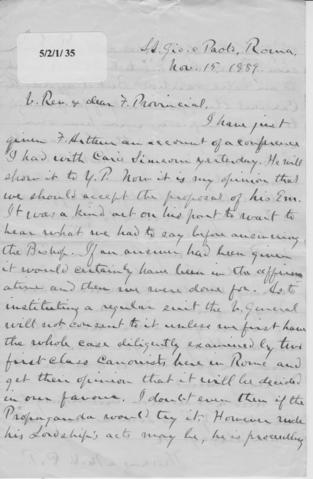 5/2/1/35
SS. Gio. e Paolo, Roma.
Nov. 15, 1889.
V. Rev. & dear F. Provincial.
I have just
given F. Arthur an account of a conference
I had with Card. Simeoni yesterday. He will
show it to Y.P. Now it is my opinion that
we should accept the proposal of his Em.
It was a kind act on his part to wait to
hear what we had to say before answering
the Bishop. If an answer had been given
it would certainly have been in the affirm
ative and then we were done for. As to
instituting a regular suit the V. General
will not consent to it unless we first have
the whole case diligently examined by two
first class Canonists here in Rome and
get their opinion that it will be decided
in our favour. I doubt even then if the
Propaganda would try it. However rude
his Lordship's acts may be, he is proceeding